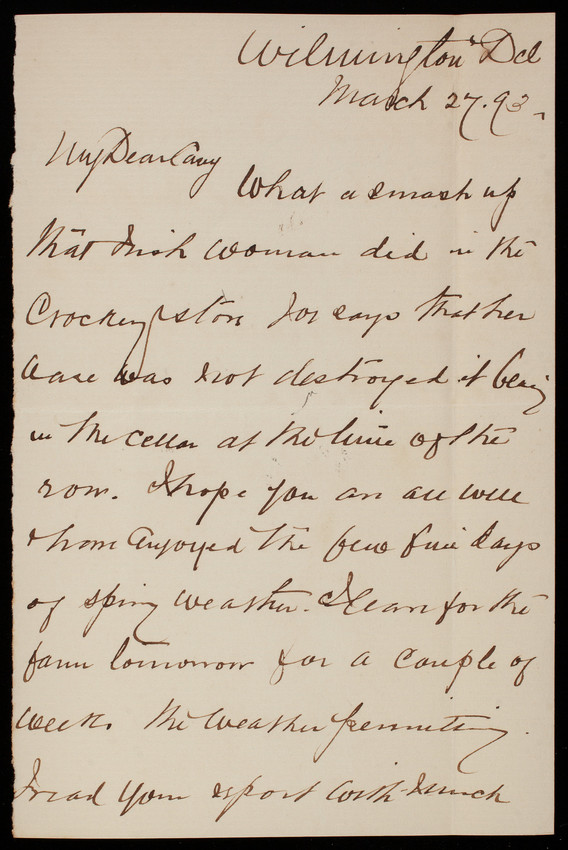 Wilmington Del
March 27. 93
My Dear Casey
What a smash up
that Irish woman did in the
Crockery store Jos says that her
ware was not destroyed it being
in the cellar at the time of the
row. I hope you are all well
& have enjoyed the few fine days
of spring weather. I leave for the
farm tomorrow for a couple of
weeks the weather permitting.
I read your report with much